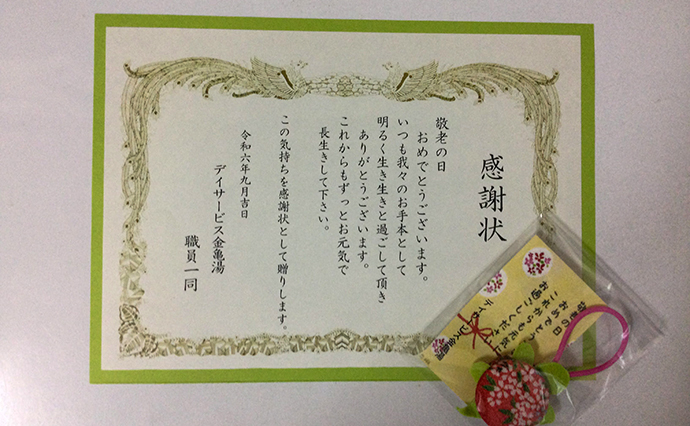 感謝状
敬老の日
おめでとうございます。
いつも我々のお手本として
明るく生き生きと過ごして頂き
ありがとうございます。
これからもずっとお元気で
長生きして下さい。
この気持ちを感謝状として贈りします。
令和六年九月吉日
デイサービス金亀湯
職員一同
敬老の日
おめでとう
これからも元気に
お過ごしください